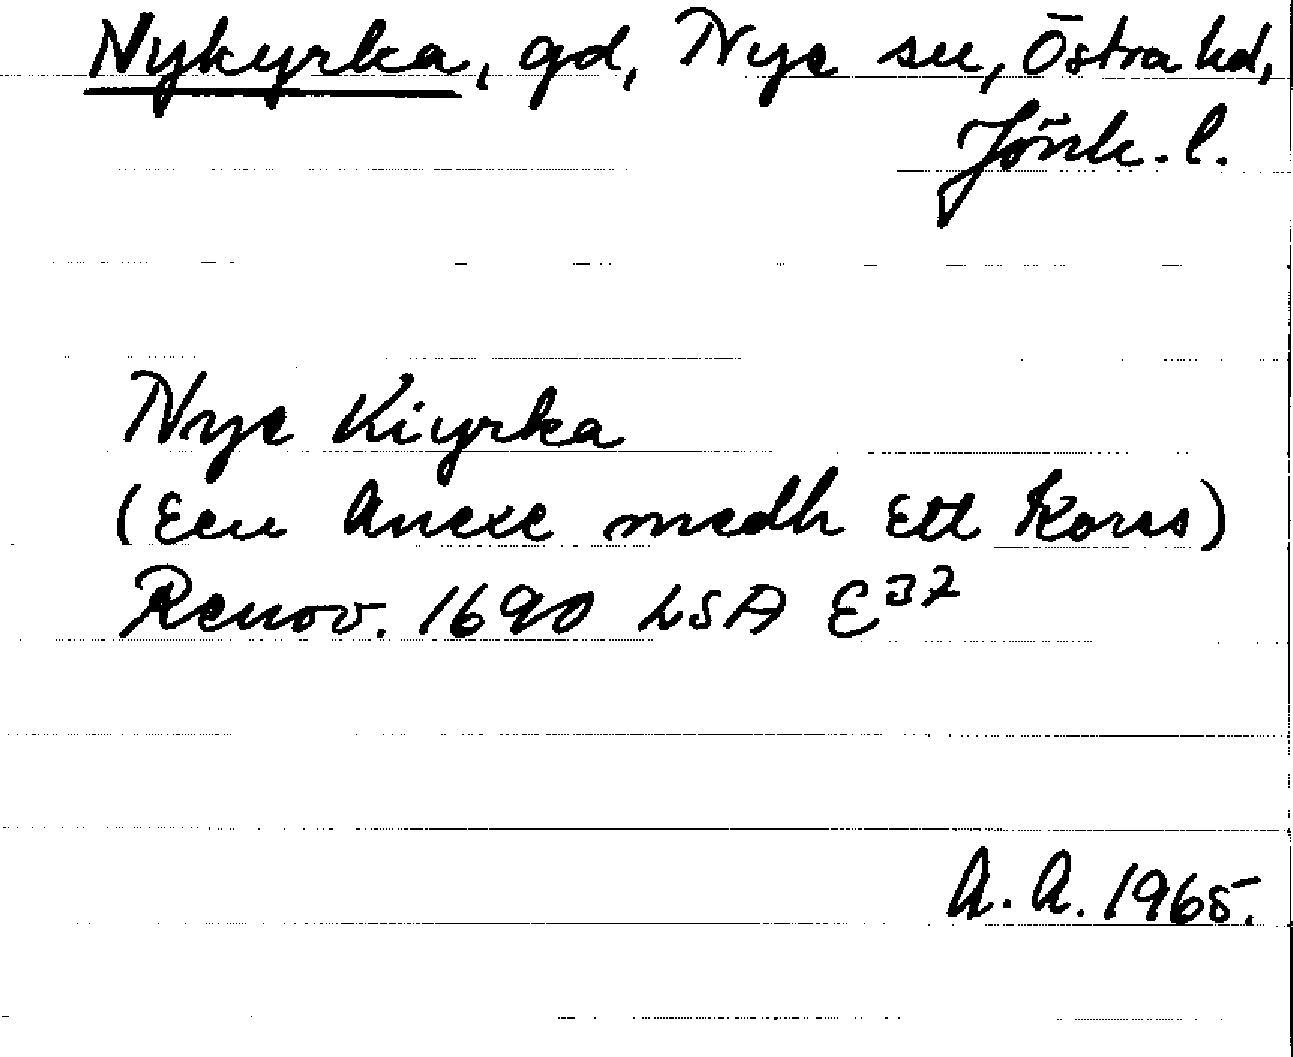 Nykyrka, gd, Nye sn, Östra hd,
Jönk. l.
Nye Kiyrka
(Een Anexe medh Ett Korss)
Renov. 1690 LSA E37
A. A. 1965.